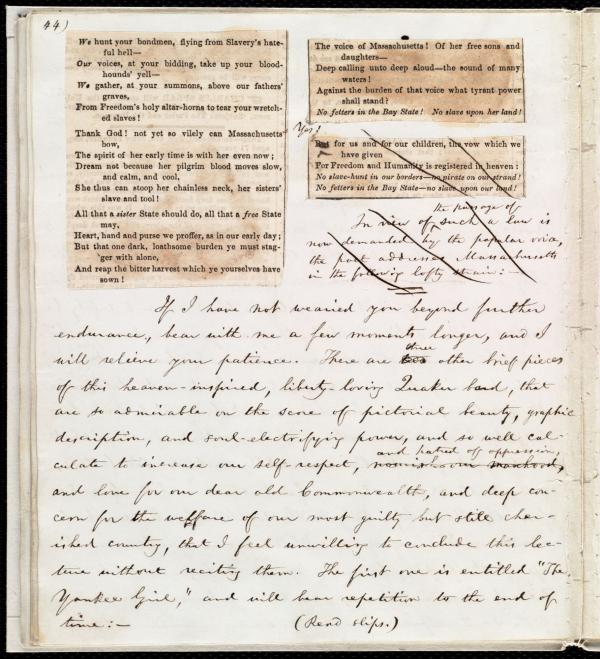 44)
We hunt your bondmen, flying from Slavery's hate-
ful hell—
Our voices, at your bidding, take up your blood-
hounds' yell—
We gather, at your summons, above our fathers'
graves,
From Freedom's holy altar-horns to tear your wretch-
ed slaves!
Thank God! not yet so vilely can Massachusetts
bow,
The spirit of her early time is with her even now;
Dream not because her pilgrim blood moves slow,
and calm, and cool,
She thus can stoop her chainless neck, her sisters'
slave and tool!
All that a sister State should do, all that a free State
may,
Heart, hand and purse we proffer, as in our early day;
But that one dark, loathsome burden ye must stag-
'ger with alone,
And reap the bitter harvest which ye yourselves have
sown!
The voice of Massachusetts! Of her free sons and
daughters—
Deep calling unto deep aloud—the sound of many
waters!
Against the burden of that voice what tyrant power
shall stand?
No fetters in the Bay State! No slave upon her land!
Yes!
But for us and for our children, the vow which we
have given
For Freedom and Humanity is registered in heaven:
No slave-hunt in our borders—no pirate on our strand!
No fetters in the Bay State—no slave upon our land!
the passage of
In view of such a law is
now demanded by the popular voice,
the poet addresses Massachusetts
in the following lofty strain:—
If I have not wearied you beyond further
endurance, bear with me a few moments longer, and I
will relieve your patience. There are two three other brief pieces
of this heaven-inspired, liberty-loving Quaker bard, that
are so admirable on the score of pictorial beauty, graphic
description, and soul-electrifying power, and so well cal-
and hatred of oppression,
culate to increase our self-respect, our manhood,
and love for our dear old Commonwealth, and deep con-
cern for the welfare of our most guilty but still cher-
ished country, that I feel unwilling to conclude this lec-
ture without reciting them. The first one is entitled "The
Yankee Girl," and will bear repetition to the end of
time:— (Read slips.)